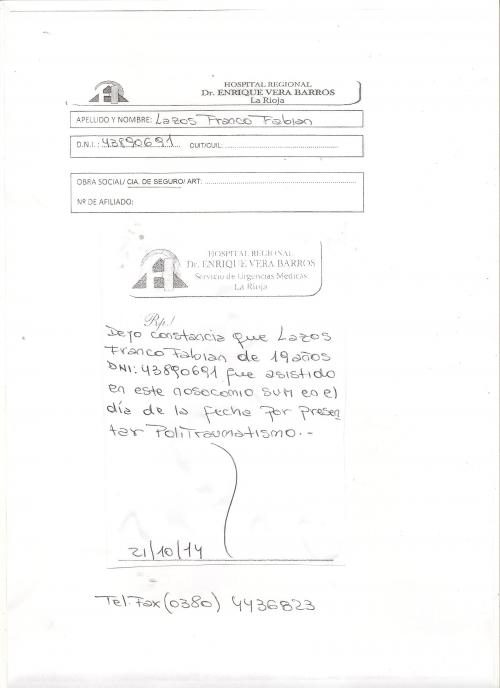 HOSPITAL REGIONAL
Dr. ENRIQUE VERA BARROS
La Rioja
APELLIDO Y NOMBRE: Lazos Franco Fabian
D.N.I.: 43890691 CUIT/CUIL:
OBRA SOCIAL/ CIA. DE SEGURO/ ART:
Nº DE AFILIADO:
HOSPITAL REGIONAL
Dr. ENRIQUE VERA BARROS
Servicio de Urgencias Médicas
La Rioja
Rp./
Dejo constancia que Lazos
Franco Fabian de 19 años
DNI: 43890691 fue asistido
en este nosocomio SUM en el
día de la fecha por presen
tar PoliTraumatismo.-
21/10/14
Tel.Fax (0380) 4436823